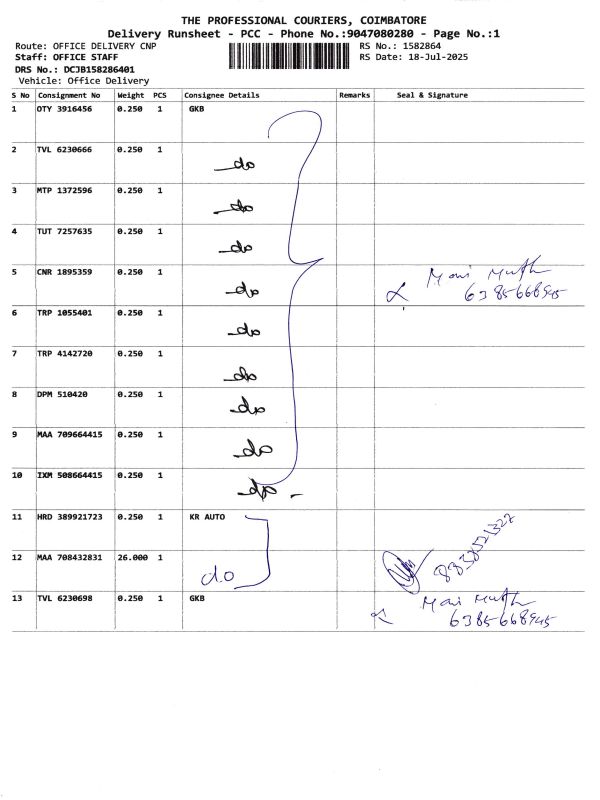 THE PROFESSIONAL COURIERS, COIMBATORE
Delivery Runsheet - PCC - Phone No.:9047080280 - Page No.:1
Route: OFFICE DELIVERY CNP RS No.: 1582864
Staff: OFFICE STAFF RS Date: 18-Jul-2025
DRS No.: DCJB158286401
Vehicle: Office Delivery
S No Consignment No Weight PCS Consignee Details Remarks Seal & Signature
1 OTY 3916456 0.250 1 GKB
2 TVL 6230666 0.250 1 do
3 MTP 1372596 0.250 1 do
4 TUT 7257635 0.250 1 do
5 CNR 1895359 0.250 1 do Mani Muth
6385668945
6 TRP 1055401 0.250 1 do
7 TRP 4142720 0.250 1 do
8 DPM 510420 0.250 1 do
9 MAA 709664415 0.250 1 do
10 IXM 508664415 0.250 1 do
11 HRD 389921723 0.250 1 KR AUTO
12 MAA 708432831 26.000 1 do
13 TVL 6230698 0.250 1 GKB Mani Muth
6385668945